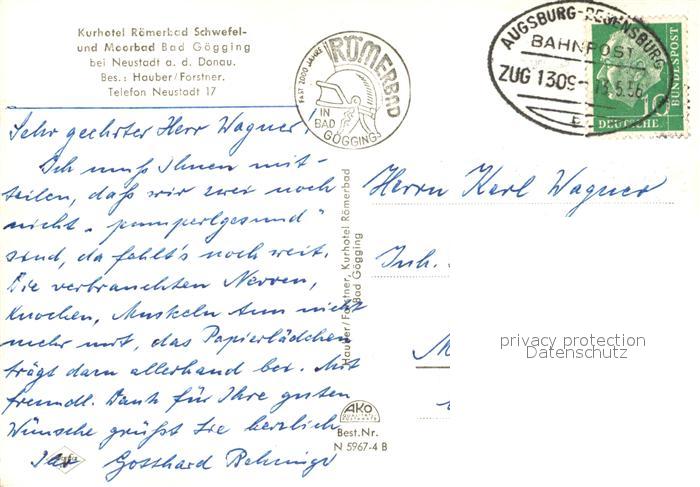 Kurhotel Römerbad Schwefel-
und Moorbad Bad Gögging
bei Neustadt a. d. Donau.
Bes.: Hauber/Forstner.
Telefon Neustadt 17
FAST 2000 JAHRE
RÖMERBAD
IN
BAD
GÖGGING
AUGSBURG-REGENSBURG
BAHNPOST
ZUG 1309
.5.56
10
DEUTSCHE
BUNDESPOST
Sehr geehrter Herr Wagner!
Ich muß Ihnen mit-
teilen, daß wir zwei noch
nicht „pumperlgesund"
sind, da fehlt's noch weit.
Die verbrauchten Nerven,
Knochen, Muskeln tun nicht
mehr mit, das Papierlädchen
trägt dazu allerhand bei. Mit
freundl. Dank für Ihre guten
Wünsche grüßt Sie herzlich
Ihr Gotthard
Hauber/Forstner, Kurhotel Römerbad
Bad Gögging
AKO
Best.Nr.
N 5967-4 B
Herrn Karl Wagner
Inh.
M
privacy protection
Datenschutz